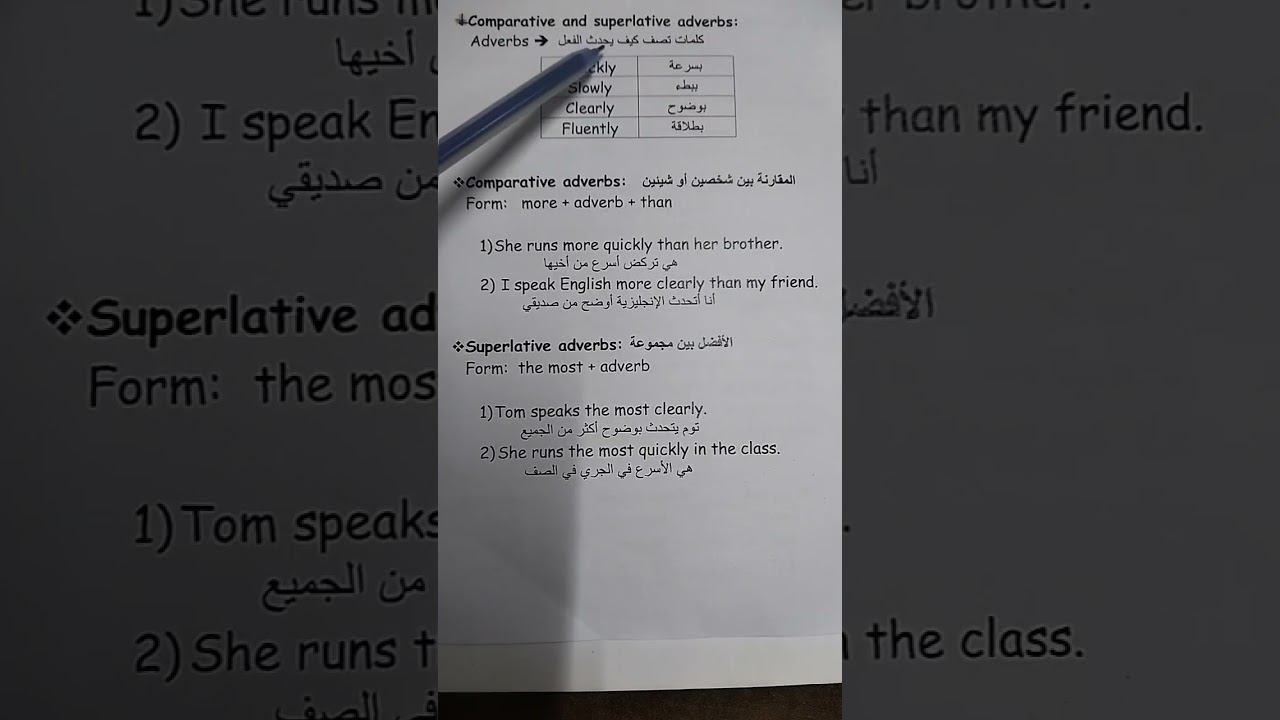 Comparative and superlative adverbs:
Adverbs → كلمات تصف كيف يحدث الفعل
بسرعة
Slowly ببطء
Clearly بوضوح
Fluently بطلاقة
Comparative adverbs: المقارنة بين شخصين أو شيئين
Form: more + adverb + than
1) She runs more quickly than her brother.
هي تركض أسرع من أخيها
2) I speak English more clearly than my friend.
أنا أتحدث الإنجليزية أوضح من صديقي
Superlative adverbs: الأفضل بين مجموعة
Form: the most + adverb
1) Tom speaks the most clearly.
توم يتحدث بوضوح أكثر من الجميع
2) She runs the most quickly in the class.
هي الأسرع في الجري في الصف